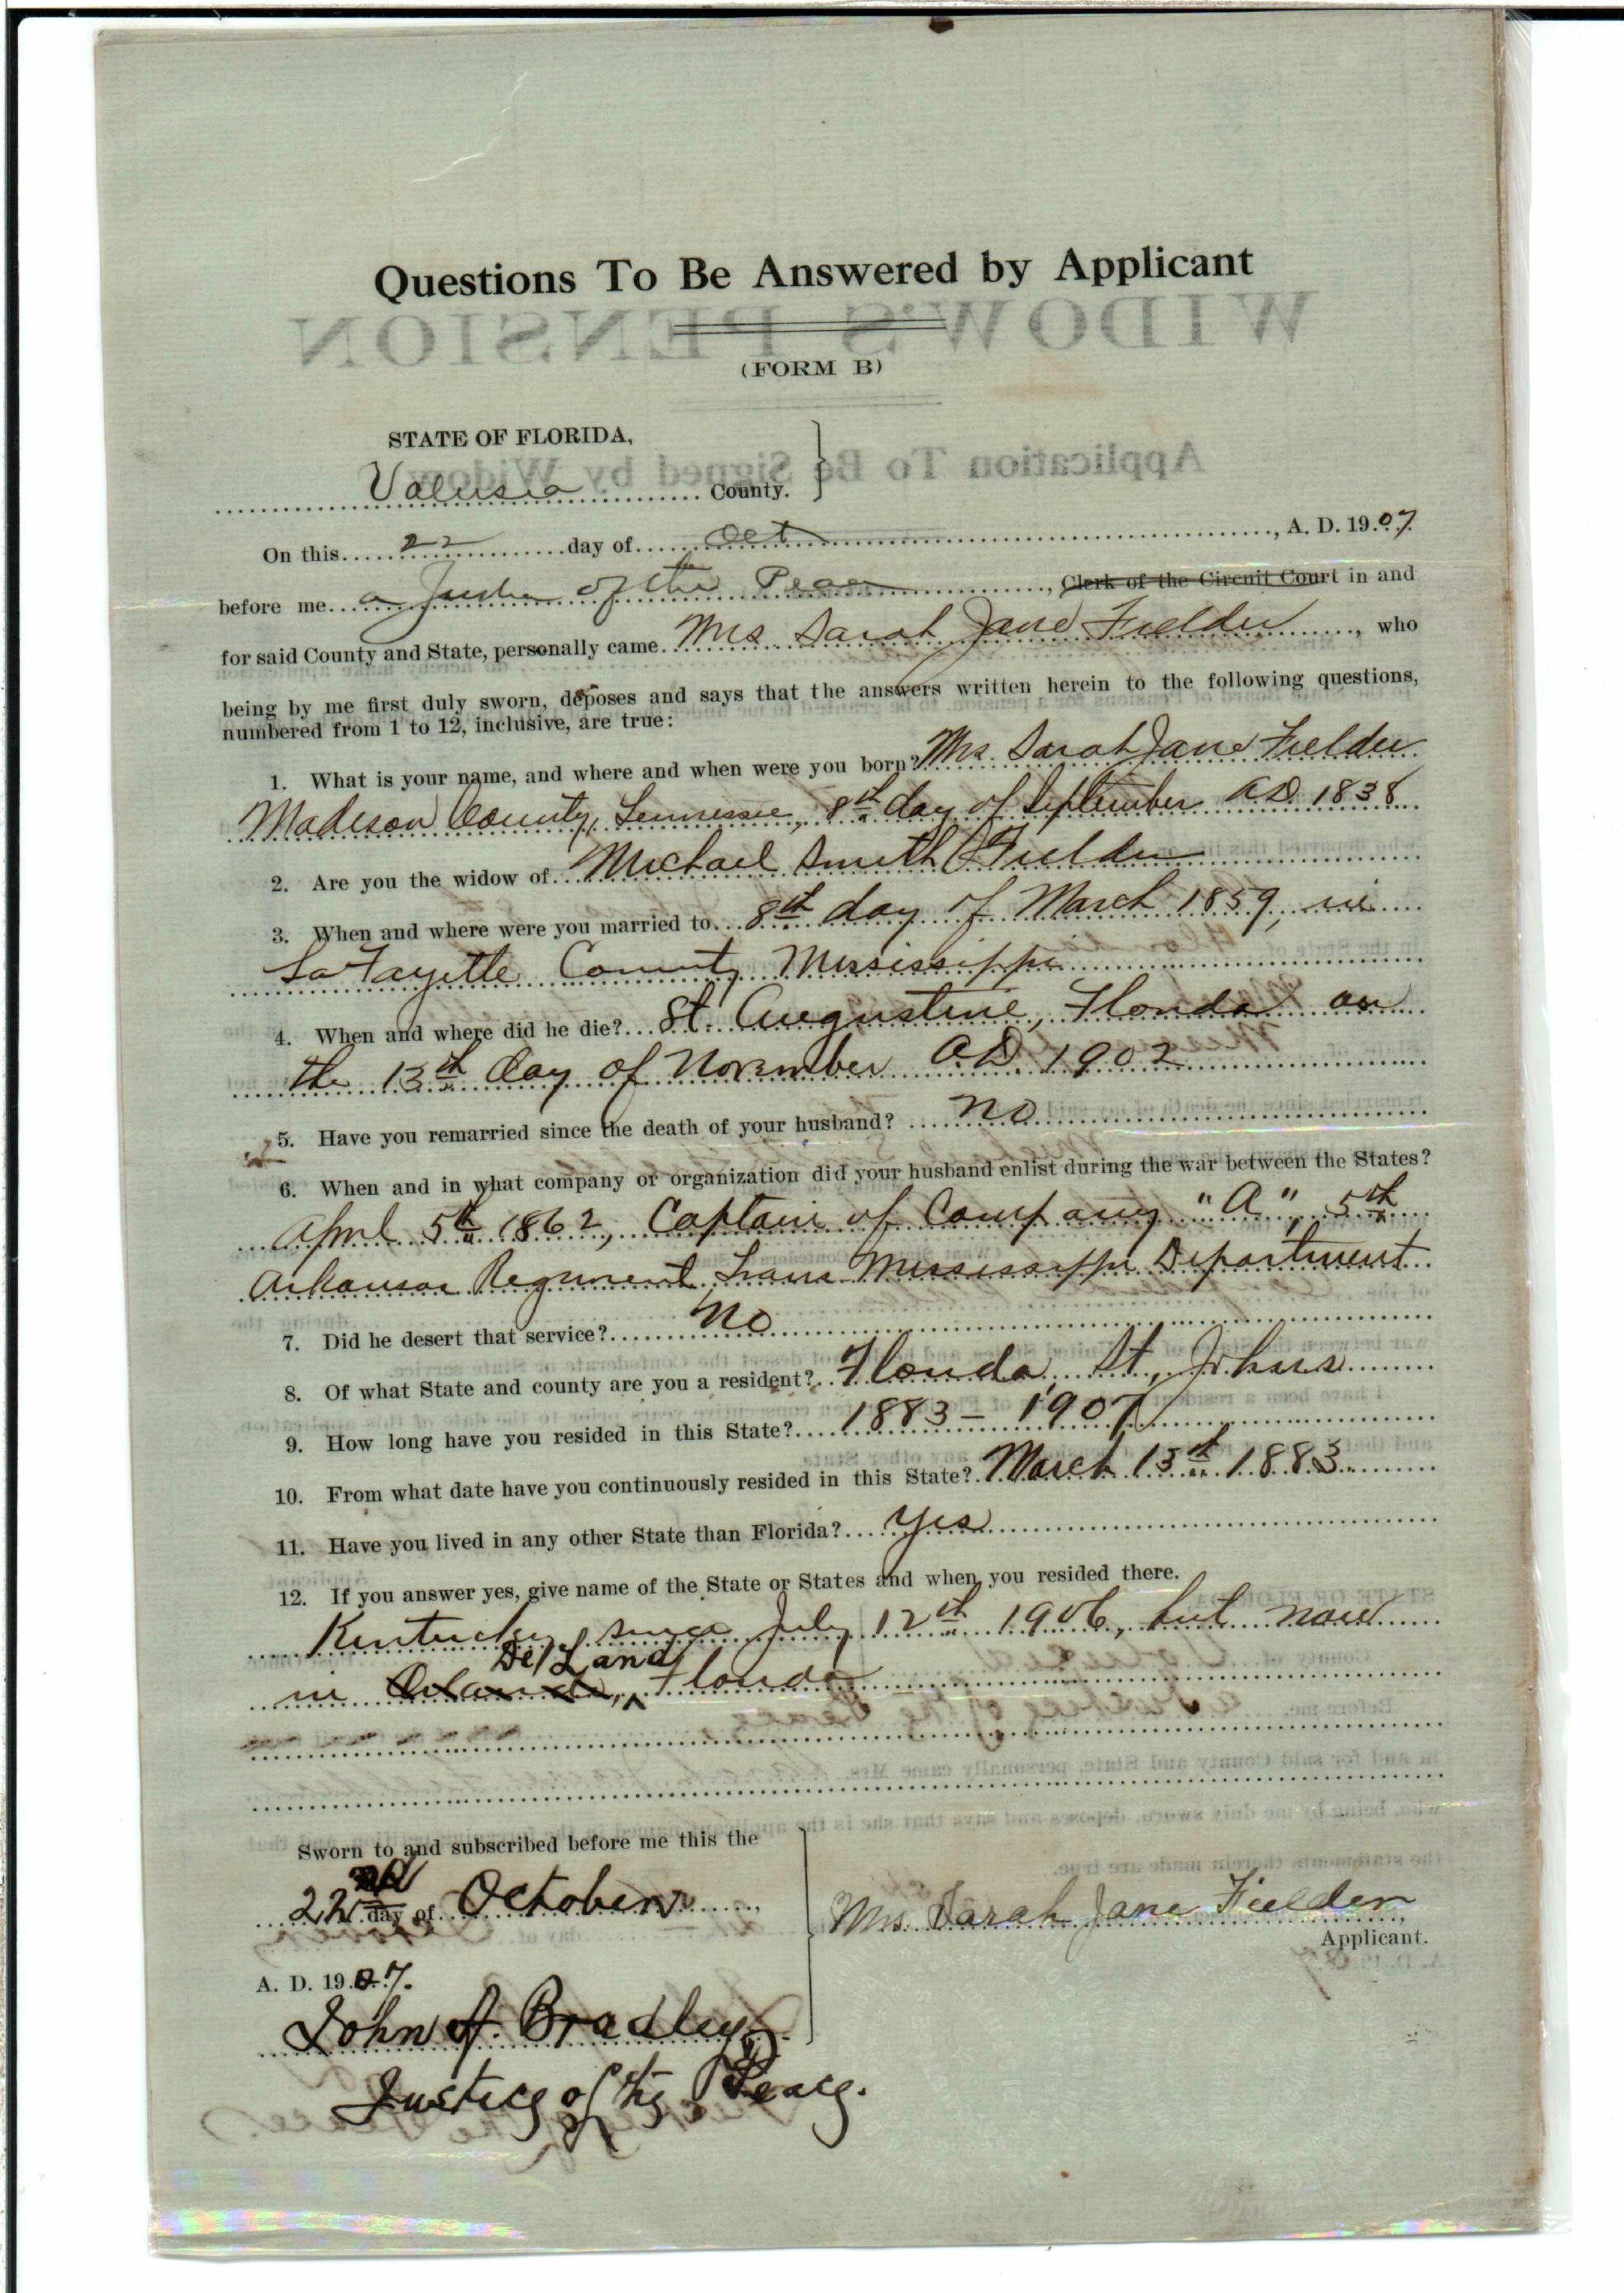 Questions To Be Answered by Applicant
WIDOW'S PENSION
(FORM B)
STATE OF FLORIDA,
Application To Be Signed by Widow
Volusia County.
On this 22 day of Oct, A. D. 1907.
before me a Justice of the Peace, Clerk of the Circuit Court in and
for said County and State, personally came Mrs Sarah Jane Fielder, who
being by me first duly sworn, deposes and says that the answers written herein to the following questions,
numbered from 1 to 12, inclusive, are true:
1. What is your name, and where and when were you born? Mrs. Sarah Jane Fielder
Madison County, Tennessee, 8th day of September A.D. 1838
2. Are you the widow of Michael Smith Fielder
3. When and where were you married to 8th day of March 1859, in
LaFayette County Mississippi
4. When and where did he die? St. Augustine, Florida on
the 13th day of November A.D. 1902
5. Have you remarried since the death of your husband? no
6. When and in what company or organization did your husband enlist during the war between the States?
April 5th 1862, Captain of Company "A", 5th
Arkansas Regiment, Trans Mississippi Department
7. Did he desert that service? No
8. Of what State and county are you a resident? Florida, St. Johns
9. How long have you resided in this State? 1883 - 1907
10. From what date have you continuously resided in this State? March 13th 1883
11. Have you lived in any other State than Florida? Yes
12. If you answer yes, give name of the State or States and when you resided there.
Kentucky, since July 12th 1906, but now
De Land
in Orlando, Florida
Sworn to and subscribed before me this the
22nd day of October,
Mrs. Sarah Jane Fielder
Applicant.
A. D. 1907.
John A. Bradley
Justice of the Peace.